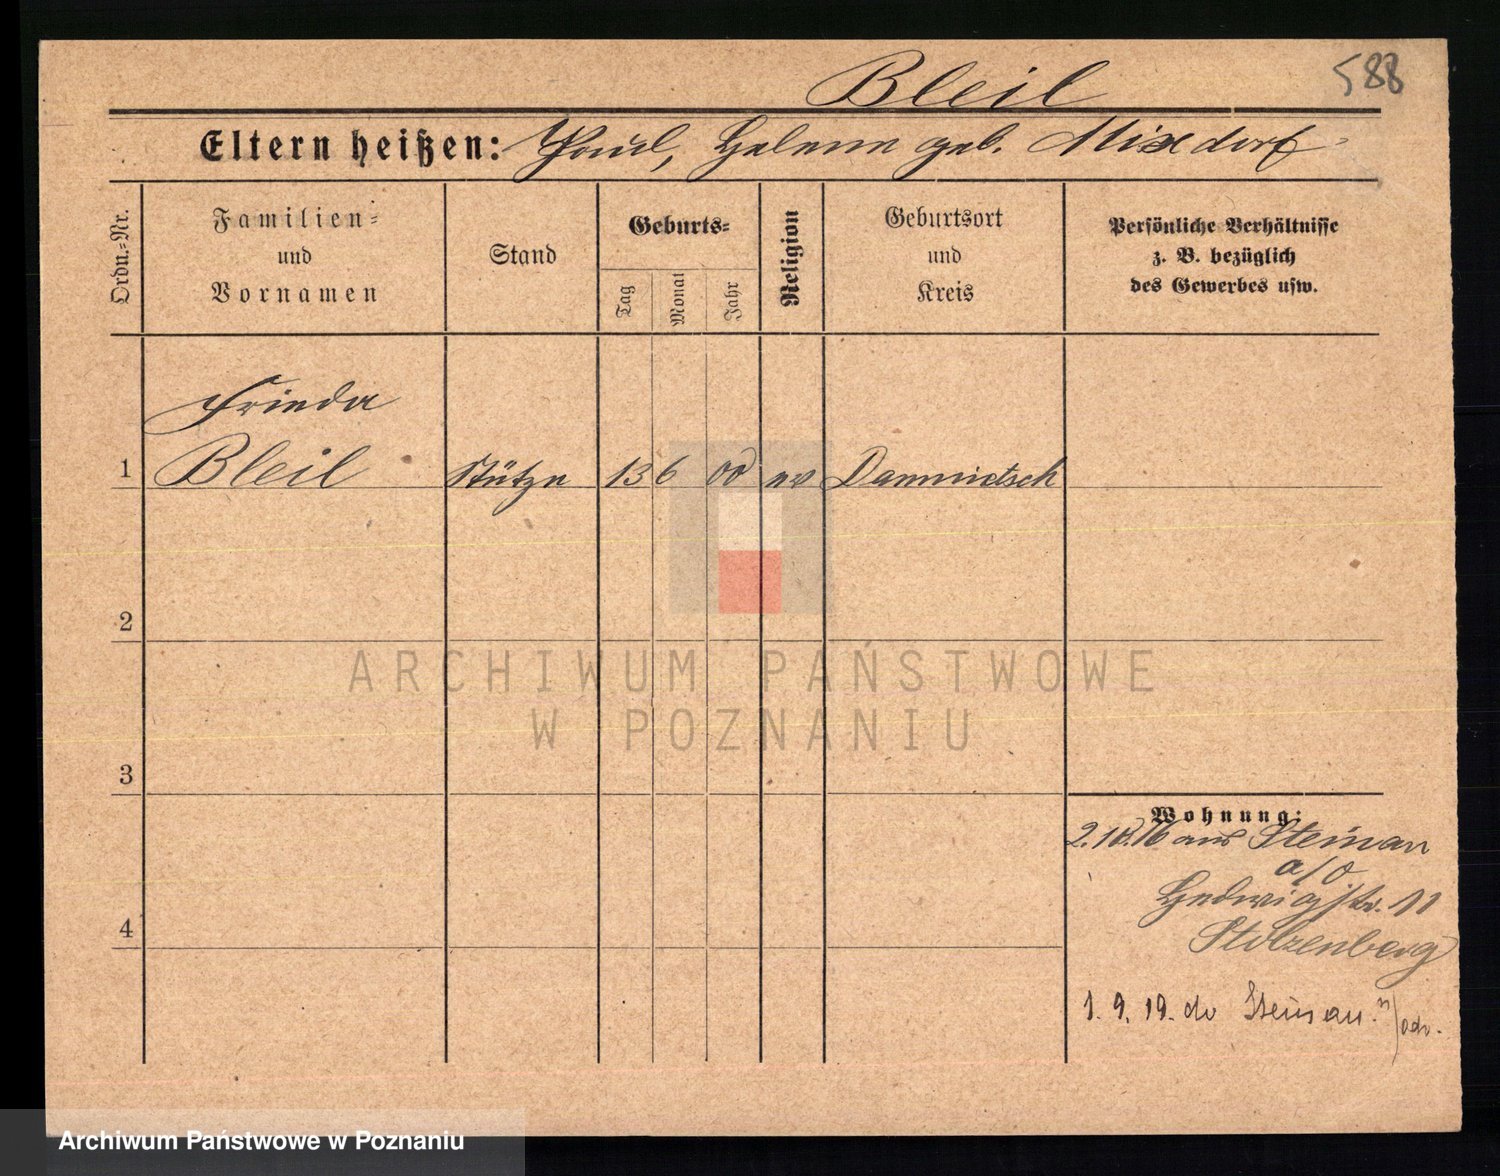 588
Bleil
Eltern heißen: Paul, Helene geb. Mixdorf
Ordn.=Nr.
Familien=
und
Vornamen
Stand
Geburts=
Tag
Monat
Jahr
Religion
Geburtsort
und
Kreis
Persönliche Verhältnisse
z. B. bezüglich
des Gewerbes usw.
Frieda
1 Bleil Stütze 13 6 00 ev Dammitsch
2
3
4
Wohnung:
2.10.16 aus Steinau
a/O
Hedwigstr. 11
Stolzenberg
1. 9. 19. do Steinau
ARCHIWUM PAŃSTWOWE
W POZNANIU
Archiwum Państwowe w Poznaniu